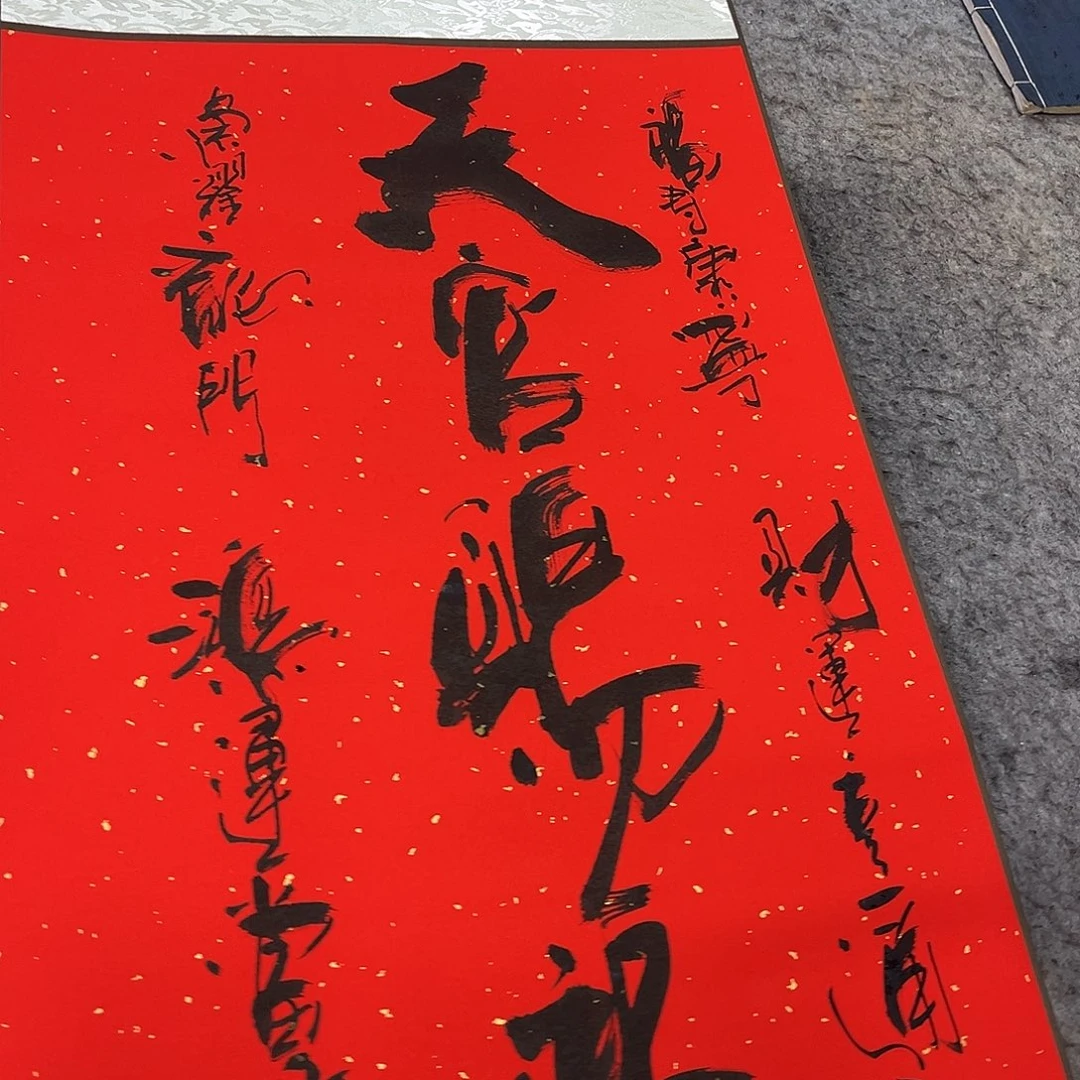 福壽康寧 財運亨通
天官賜福
耀龍門 鴻運當